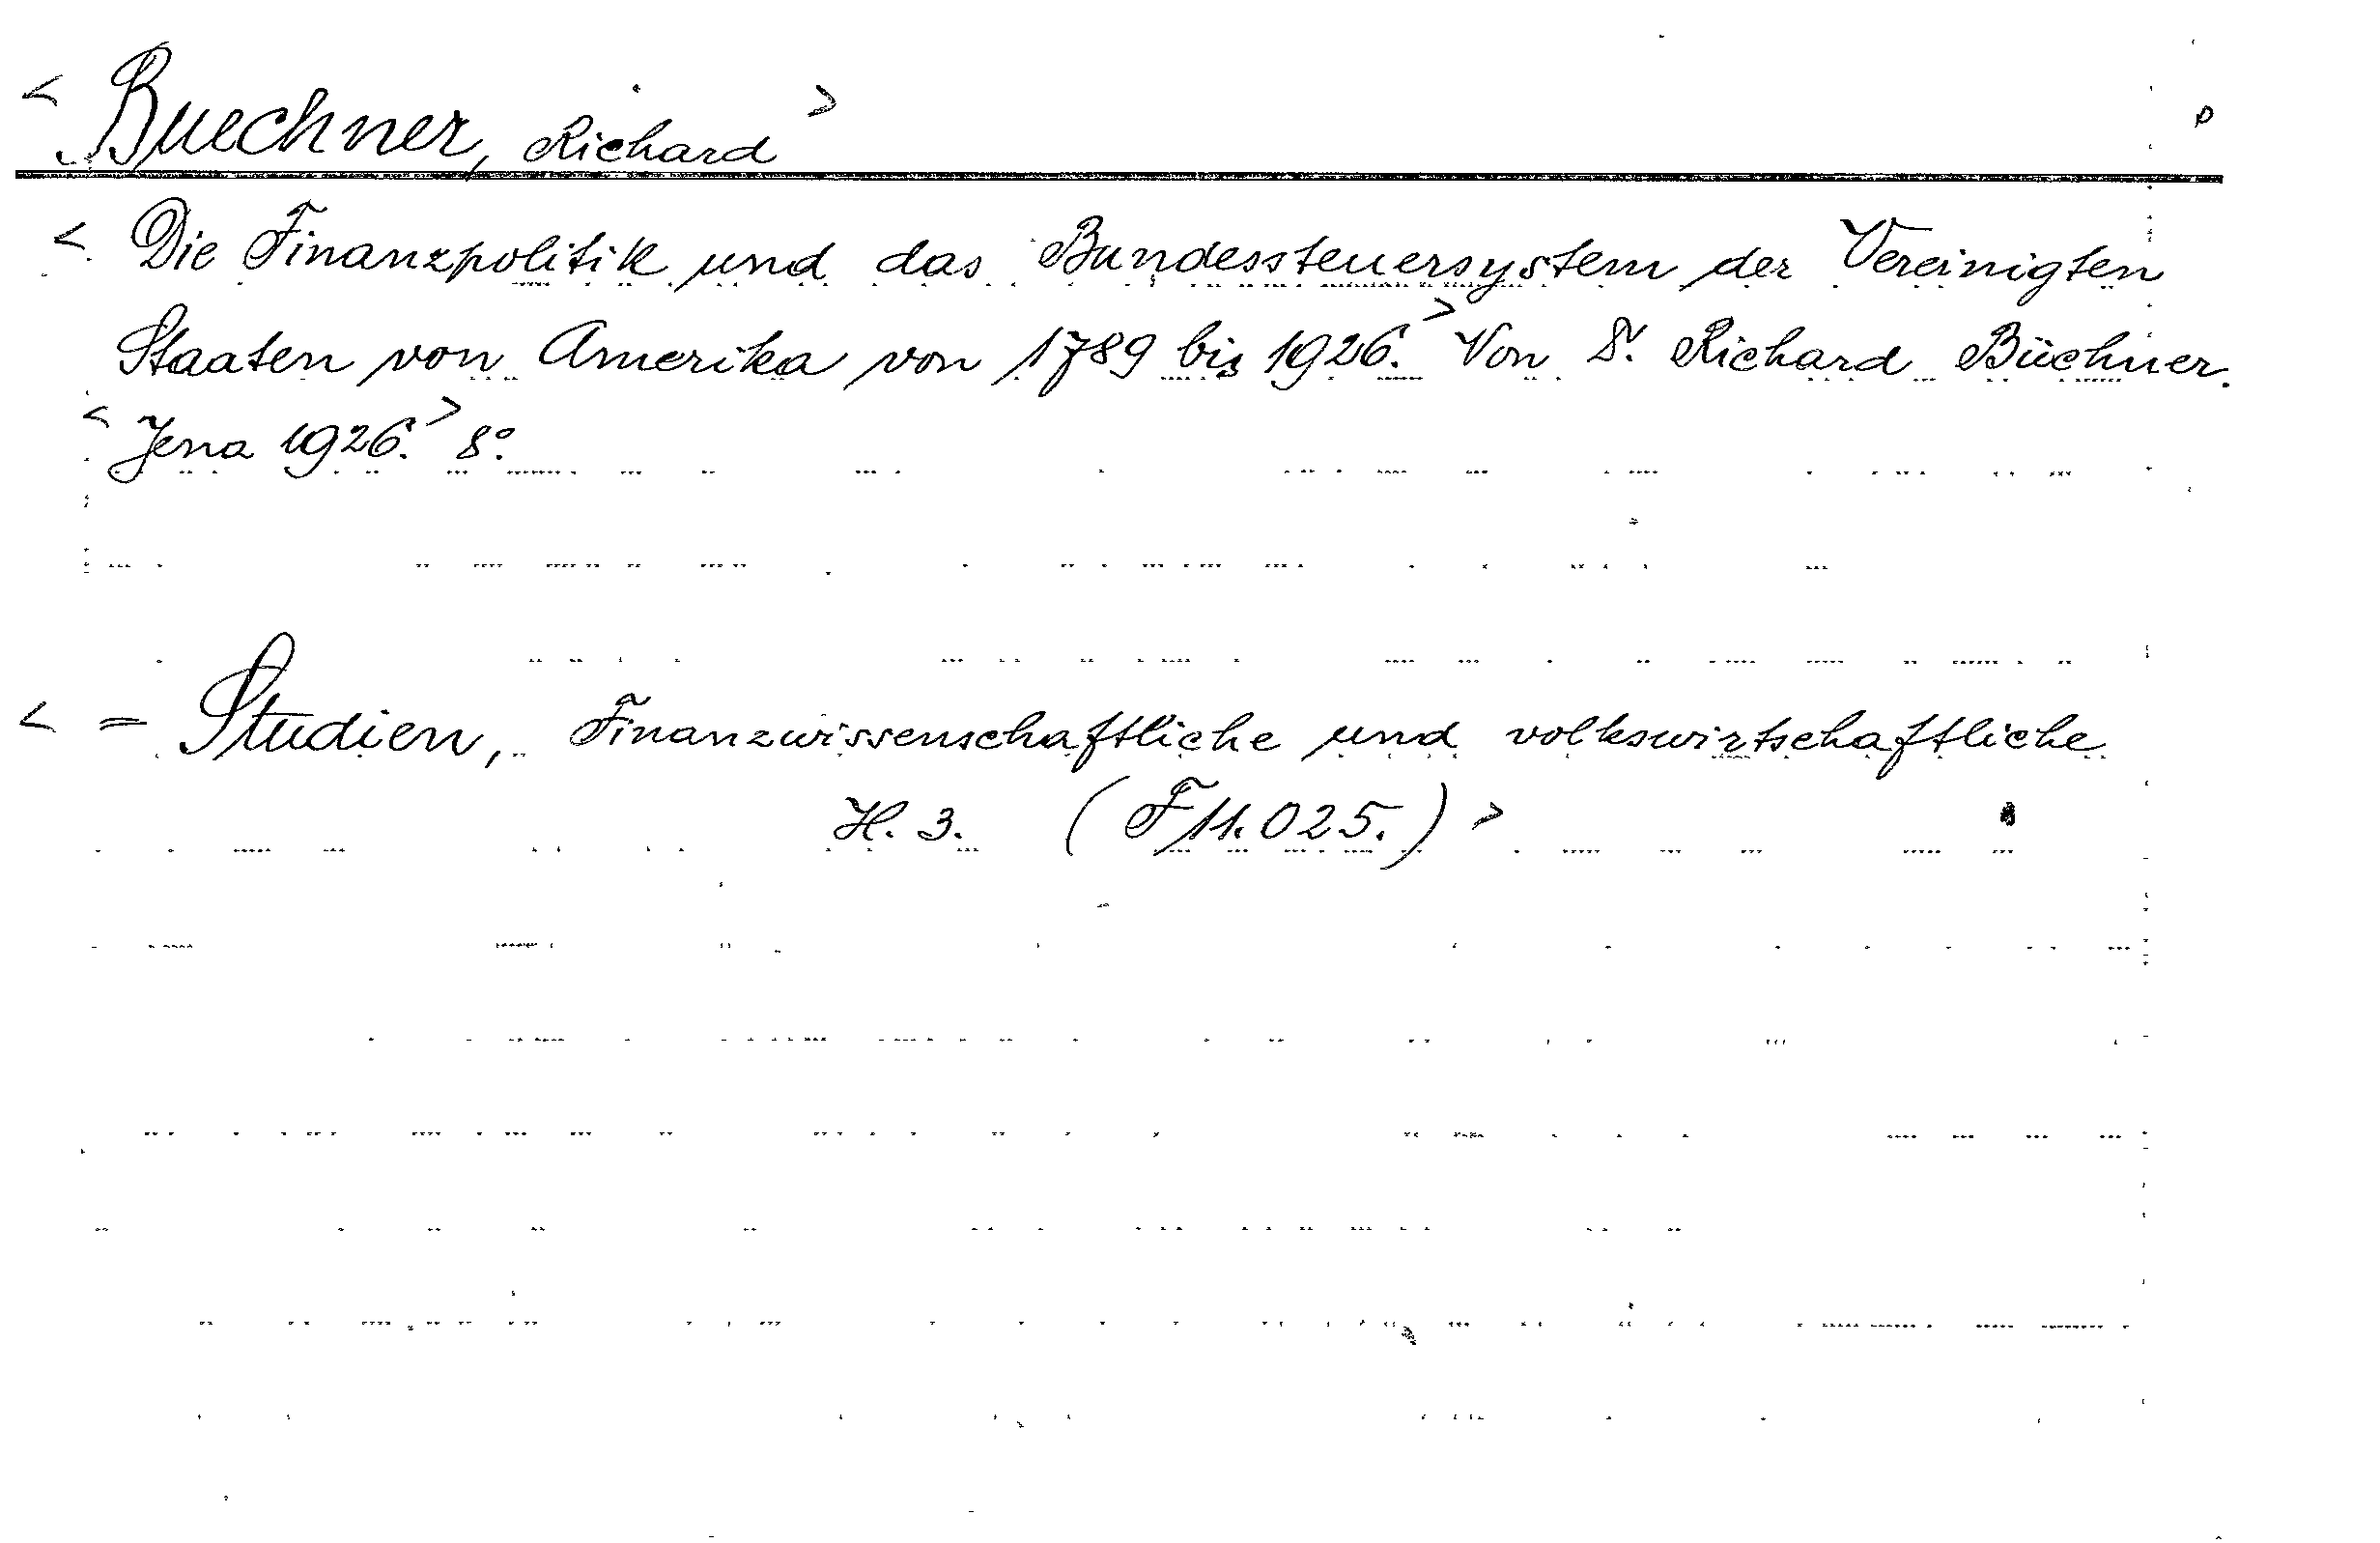 < Buechner, Richard > p
< Die Finanzpolitik und das Bundessteuersystem der Vereinigten
Staaten von Amerika von 1789 bis 1926.> Von Dr. Richard Büchner.
< Jena 1926.> 8°.
< = Studien, Finanzwissenschaftliche und volkswirtschaftliche
H. 3. (F 11.025.) >